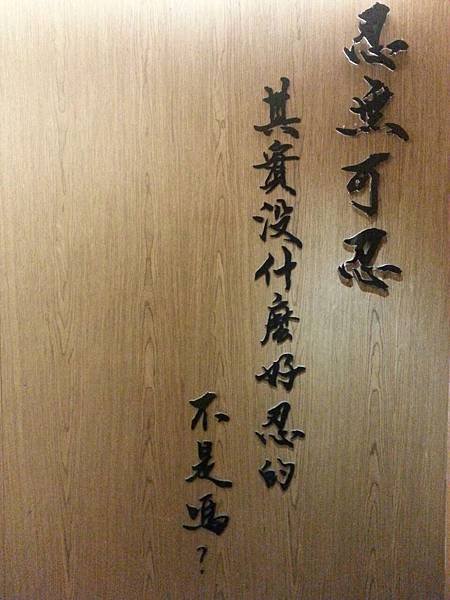 忍無可忍
其實没什麼好忍的
不是嗎?